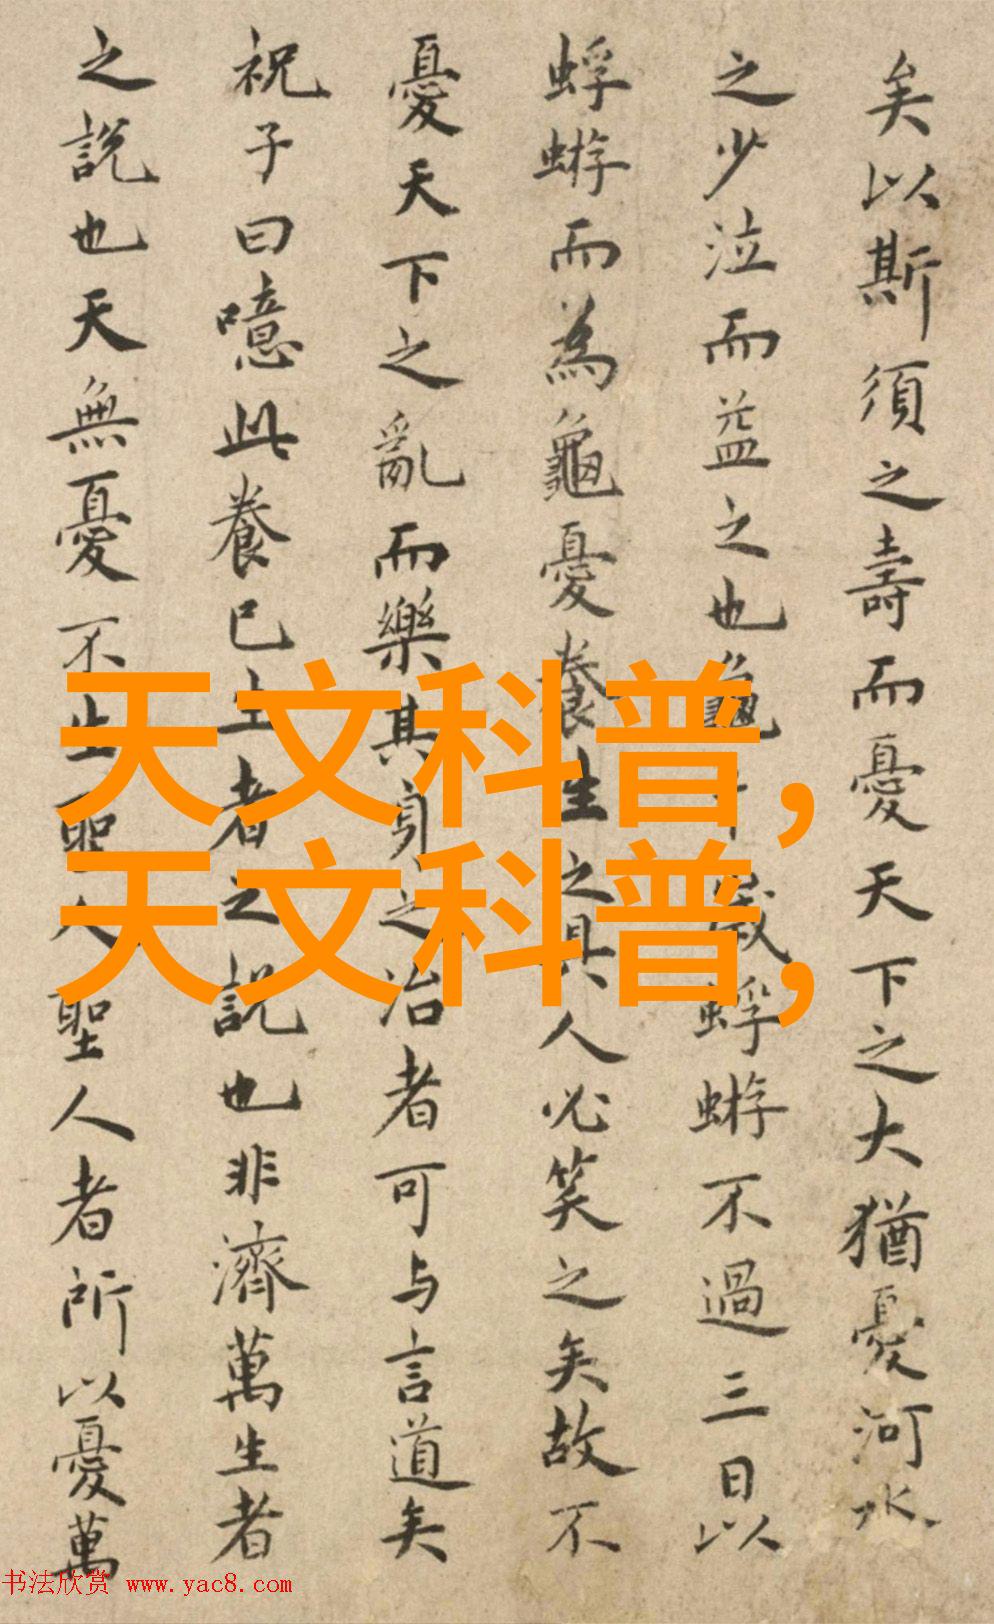 矣以斯須之壽而憂天下之大猶憂河水
之少泣而益之也龜千歲蜉蝣不過三日以
蜉蝣而為龜憂養生之具人必笑之矣故不
憂天下之亂而樂其身之治者可与言道矣
祝子曰噫此養己生者之說也非濟萬生者
之說也天無憂不生聖人聖人者所以憂萬
天文科普,
天文科普,
书法欣赏 www.yac8.com